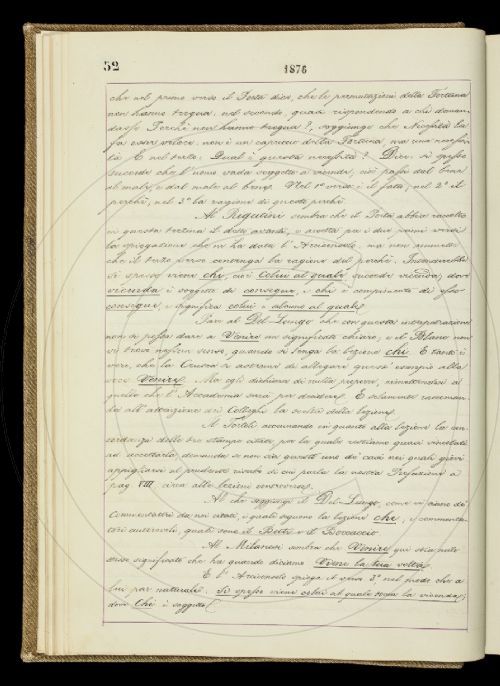 52
1876
che nel primo verso il Poeta dice, che le permutazioni della Fortuna
non hanno tregua: nel secondo, quasi rispondendo a chi doman-
dasse Perchè non hanno tregua?, soggiunge che Necessità la
fa esser veloce; non è un capriccio della Fortuna, ma una necessi-
tà. E nel terzo: Qual è questa necessità? Dice: sì spesso
succede che l'uomo vada soggetto a vicenda, cioè passi dal bene
al male, e dal male al bene. Nel 1º verso è il fatto, nel 2º il
perchè, nel 3º la ragione di questo perchè.
Al Rigutini sembra che il Poeta abbia raccolto
in questa terzina il detto avanti, e accetta pei due primi versi
la spiegazione che ne ha data l'Arciconsolo, ma non ammette
che il terzo verso contenga la ragione del perchè. Intenderebbe
Sì spesso vien chi, cioè Colui al quale succede vicenda, dove
vicenda è soggetto di consegue, e chi è complemento di esso
consegue, e significa colui o alcuno al quale.
Pare al Del-Lungo che con questa interpetrazione
non si possa dare a Venire un significato chiaro, e il Bianc non
vi trova nessun senso, quando si tenga la lezione chi. E tanto è
vero, che la Crusca si astenne di allegare questo esempio alla
voce Venire. Ma egli dichiara di nulla proporre, rimettendosi a
quello che l'Accademia sarà per decidere. E solamente raccoman-
da all'attenzione dei Colleghi la scelta della lezione.
Il Tortoli accennando in quanto alla lezione la con-
cordanza delle tre stampe citate, per la quale restiamo quasi vincolati
ad accettarla, domanda se non sia questo uno dei casi nei quali giovi
appigliarsi al prudente riserbo di cui parla la nostra Prefazione a
pag. VIII circa alle lezioni controverse.
Al che soggiunge il Del-Lungo, come vi siano dei
Commentatori da noi citati, i quali seguono la lezione che, e commenta-
tori autorevoli, quali sono il Buti e il Boccaccio.
Al Milanesi sembra che Venire qui stia nello
stesso significato che ha quando diciamo Viene la tua volta.
E l'Arciconsolo spiega il verso 3º nel modo che a
lui par naturale. Sì spesso viene colui al quale tocca la vicenda;
dove Chi è soggetto.